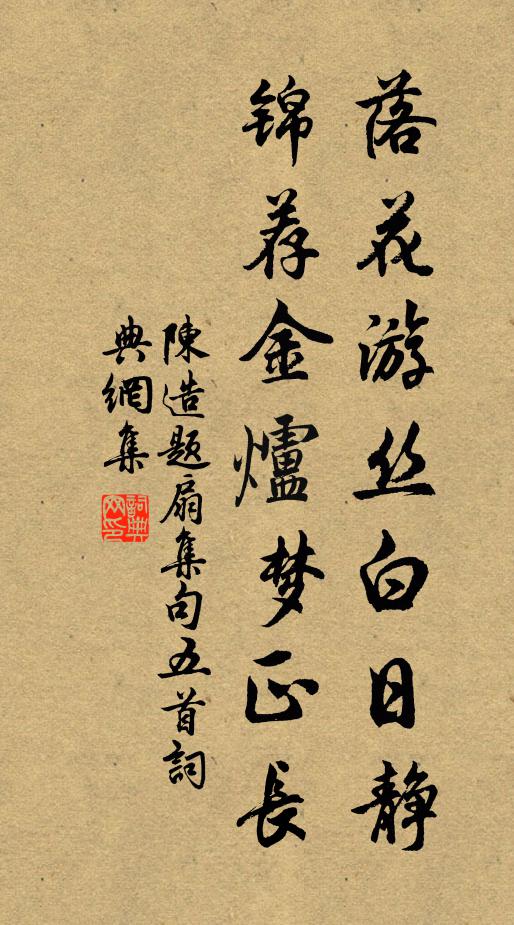 落花游丝白日静
锦荐金爐梦正長
陳造題扇集句五首詞
典網集
詞典网印